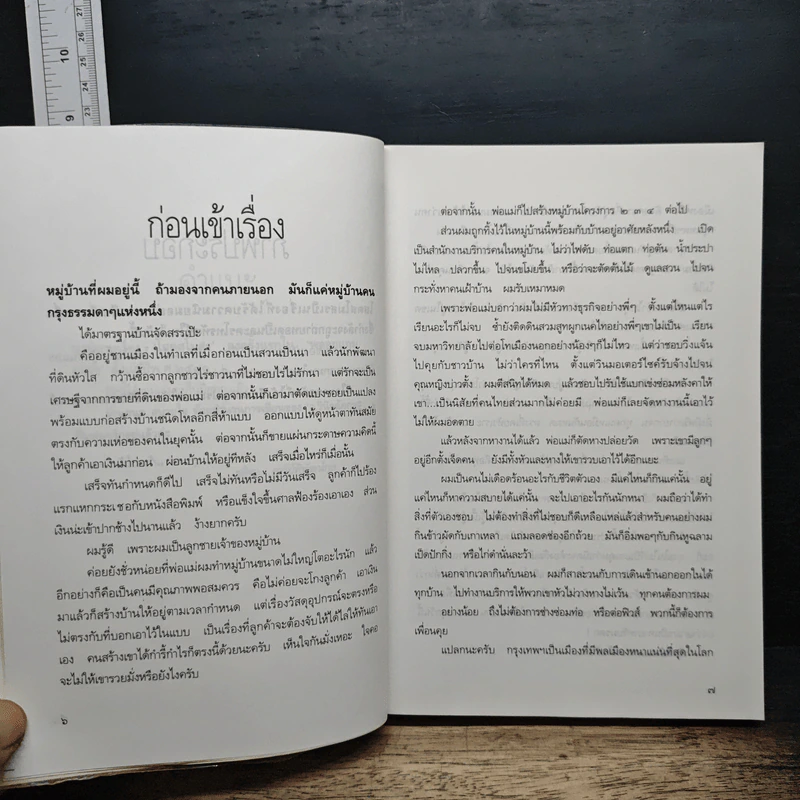 10
9
27
26
25
24
23
ก่อนเข้าเรื่อง
หมู่บ้านที่ผมอยู่นี้ ถ้ามองจากคนภายนอก มันก็แค่หมู่บ้านคน
กรุงธรรมดาๆแห่งหนึ่ง
ได้มาตรฐานบ้านจัดสรรเป๊ะ
คืออยู่ชานเมืองในทำเลที่เมื่อก่อนเป็นสวนเป็นนา แล้วนักพัฒนา
ที่ดินหัวใส กว้านซื้อจากลูกชาวไร่ชาวนาที่ไม่ชอบไร่ไม่รักนา แต่รักจะเป็น
เศรษฐีจากการขายที่ดินของพ่อแม่ ต่อจากนั้นก็เอามาตัดแบ่งซอยเป็นแปลง
พร้อมแบบก่อสร้างบ้านชนิดโหลอีกสี่ห้าแบบ ออกแบบให้ดูหน้าตาทันสมัย
ตรงกับความเห่อของคนในยุคนั้น ต่อจากนั้นก็ขายแผ่นกระดาษความคิดนี้
ให้ลูกค้าเอาเงินมาก่อน ผ่อนบ้านให้อยู่ทีหลัง เสร็จเมื่อไหร่ก็เมื่อนั้น
เสร็จทันกำหนดก็ดีไป เสร็จไม่ทันหรือไม่มีวันเสร็จ ลูกค้าก็ไปร้อง
แรกแหกกระเชอกับหนังสือพิมพ์ หรือแข็งใจขึ้นศาลฟ้องร้องเอาเอง ส่วน
เงินน่ะเข้าปากช้างไปนานแล้ว ง้างยากครับ
ผมรู้ดี เพราะผมเป็นลูกชายเจ้าของหมู่บ้าน
ค่อยยังชั่วหน่อยที่พ่อแม่ผมทำหมู่บ้านขนาดไม่ใหญ่โตอะไรนัก แล้ว
อีกอย่างก็คือเป็นคนมีคุณภาพพอสมควร คือไม่ค่อยจะโกงลูกค้า เอาเงิน
มาแล้วก็สร้างบ้านให้อยู่ตามเวลากำหนด แต่เรื่องวัสดุอุปกรณ์จะตรงหรือ
ไม่ตรงกับที่บอกเอาไว้ในแบบ เป็นเรื่องที่ลูกค้าจะต้องจับให้ได้ไล่ให้ทันเอา
เอง คนสร้างเขาได้กำรี้กำไรก็ตรงนี้ด้วยนะครับ เห็นใจกันมั่งเหอะ ใจคอ
จะไม่ให้เขารวยมั่งหรือยังไงครับ
๖
ต่อจากนั้น พ่อแม่ก็ไปสร้างหมู่บ้านโครงการ ๒ ๓ ๔ ต่อไป
ส่วนผมถูกทิ้งไว้ในหมู่บ้านนี้พร้อมกับบ้านอยู่อาศัยหลังหนึ่ง เปิด
เป็นสำนักงานบริการคนในหมู่บ้าน ไม่ว่าไฟดับ ท่อแตก ท่อตัน น้ำประปา
ไม่ไหล ปลวกขึ้น ไปจนขโมยขึ้น หรือว่าจะตัดต้นไม้ ดูแลสวน ไปจน
กระทั่งหาคนเฝ้าบ้าน ผมรับเหมาหมด
เพราะพ่อแม่บอกว่าผมไม่มีหัวทางธุรกิจอย่างพี่ๆ ตั้งแต่ไหนแต่ไร
เรียนอะไรก็ไม่จบ ซ้ำยังติดดินสวมสูทผูกเนคไทอย่างพี่ๆเขาไม่เป็น เรียน
จบมหาวิทยาลัยไปต่อโทเมืองนอกอย่างน้องๆก็ไม่ไหว แต่ว่าชอบวิ่งแจ้น
ไปคุยกับชาวบ้าน ไม่ว่าใครที่ไหน ตั้งแต่วินมอเตอร์ไซค์รับจ้างไปจน
คุณหญิงบ่าวตั้ง ผมตีสนิทได้หมด แล้วชอบไปรับใช้แบกเข่งซ่อมหลังคาให้
เขา...เป็นนิสัยที่คนไทยส่วนมากไม่ค่อยมี พ่อแม่ก็เลยจัดหางานนี้เอาไว้
ไม่ให้ผมอดตาย
แล้วหลังจากหางานได้แล้ว พ่อแม่ก็ตัดหางปล่อยวัด เพราะเขามีลูกๆ
อยู่อีกตั้งเจ็ดคน ยังมีทั้งหัวและหางให้เขารวบเอาไว้ได้อีกแยะ
ผมเป็นคนไม่เดือดร้อนอะไรกับชีวิตตัวเอง มีแค่ไหนก็กินแค่นั้น อยู่
แค่ไหนก็หาความสบายได้แค่นั้น จะไปเอาอะไรกันนักหนา ผมถือว่าได้ทำ
สิ่งที่ตัวเองชอบ ไม่ต้องทำสิ่งที่ไม่ชอบก็ดีเหลือแหล่แล้วสำหรับคนอย่างผม
กินข้าวผัดกับเกาเหลา แถมลอดช่องอีกถ้วย มันก็อิ่มพอๆกับกินหูฉลาม
เป็ดปักกิ่ง หรือไก่ดำนั่นละว้า
นอกจากเวลากินกับนอน ผมก็สาละวนกับการเดินเข้านอกออกในได้
ทุกบ้าน ไปทำงานบริการให้พวกเขาหัวไม่วางหางไม่เว้น ทุกคนต้องการผม
อย่างน้อย ถึงไม่ต้องการช่างซ่อมท่อ หรือต่อฟิวส์ พวกนี้ก็ต้องการ
เพื่อนคุย
แปลกนะครับ กรุงเทพฯเป็นเมืองที่มีพลเมืองหนาแน่นที่สุดในโลก
๗